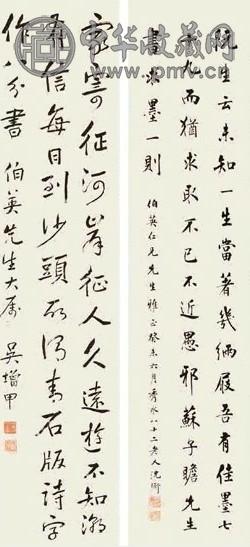 中华收藏网
阮生云未知一生當著幾緉屐吾有佳墨七
十丸而猶求取不已不近愚邪蘇子瞻先生
書求墨一則
伯英仁兄先生雅正癸未六月秀水八十二老人沈衛
家寄征河岸征人久遠遊不知潮
水信每日到沙頭 得青石版詩字
作八分書
伯英先生大屬
吴增甲